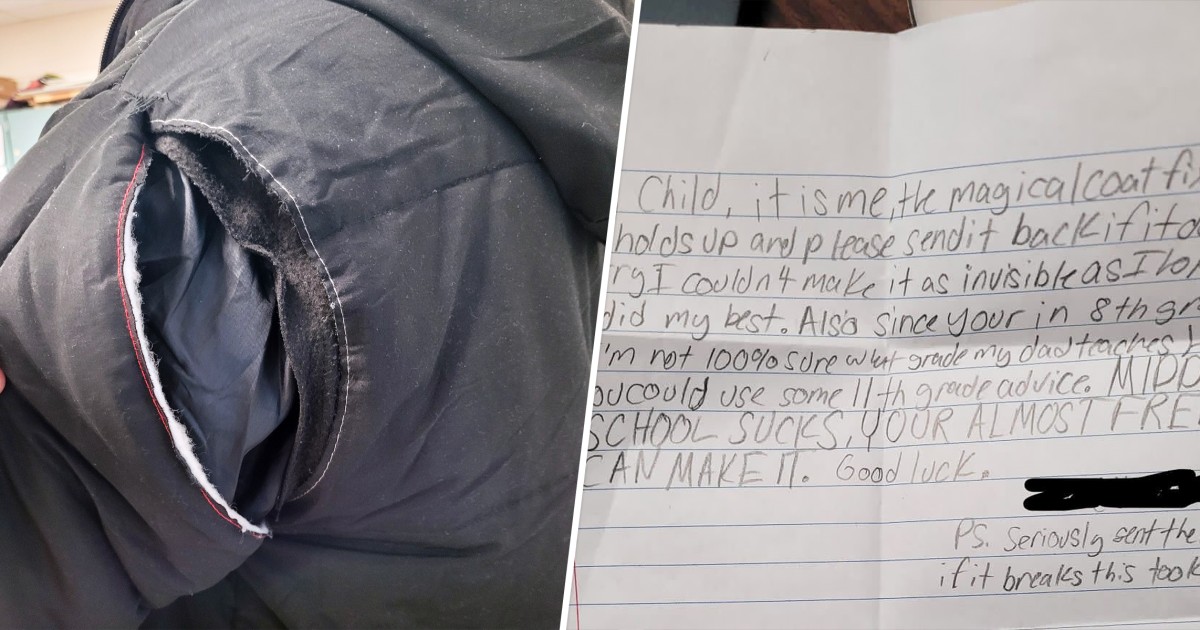 Child, it is me, the magical coat fix
holds up and please send it back if it do
ry I couldn't make it as invisible as I
did my best. Also since your in 8th gr
'm not 100% sure what grade my dad teaches
ou could use some 11th grade advice. MIDD
SCHOOL SUCKS, YOUR ALMOST FRE
CAN MAKE IT. Good luck.
PS. Seriously sent the
if it breaks this took